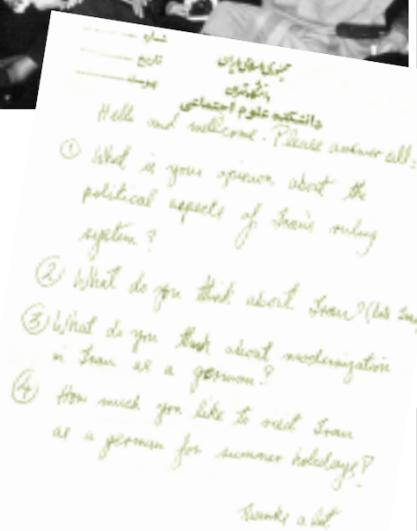 شماره
تاریخ
پیوست
جمهوری اسلامی ایران
دانشگاه تهران
دانشکده علوم اجتماعی
Hello and wellcome. Please answer all:
① What is your opinion about the
political aspects of Iran's ruling
system?
② What do you think about Iran?
③ What do you think about modernization
in Iran as a german?
④ How much you like to visit Iran
as a german for summer holidays?
Thanks a lot